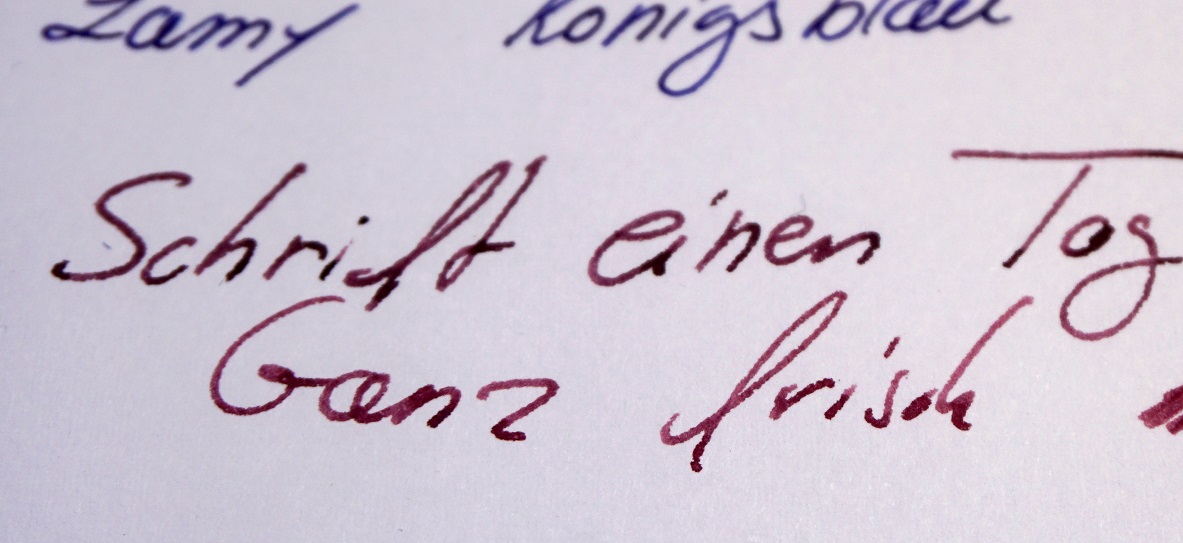 Lamy Königsblau
Schrift einen Tag
Ganz frisch